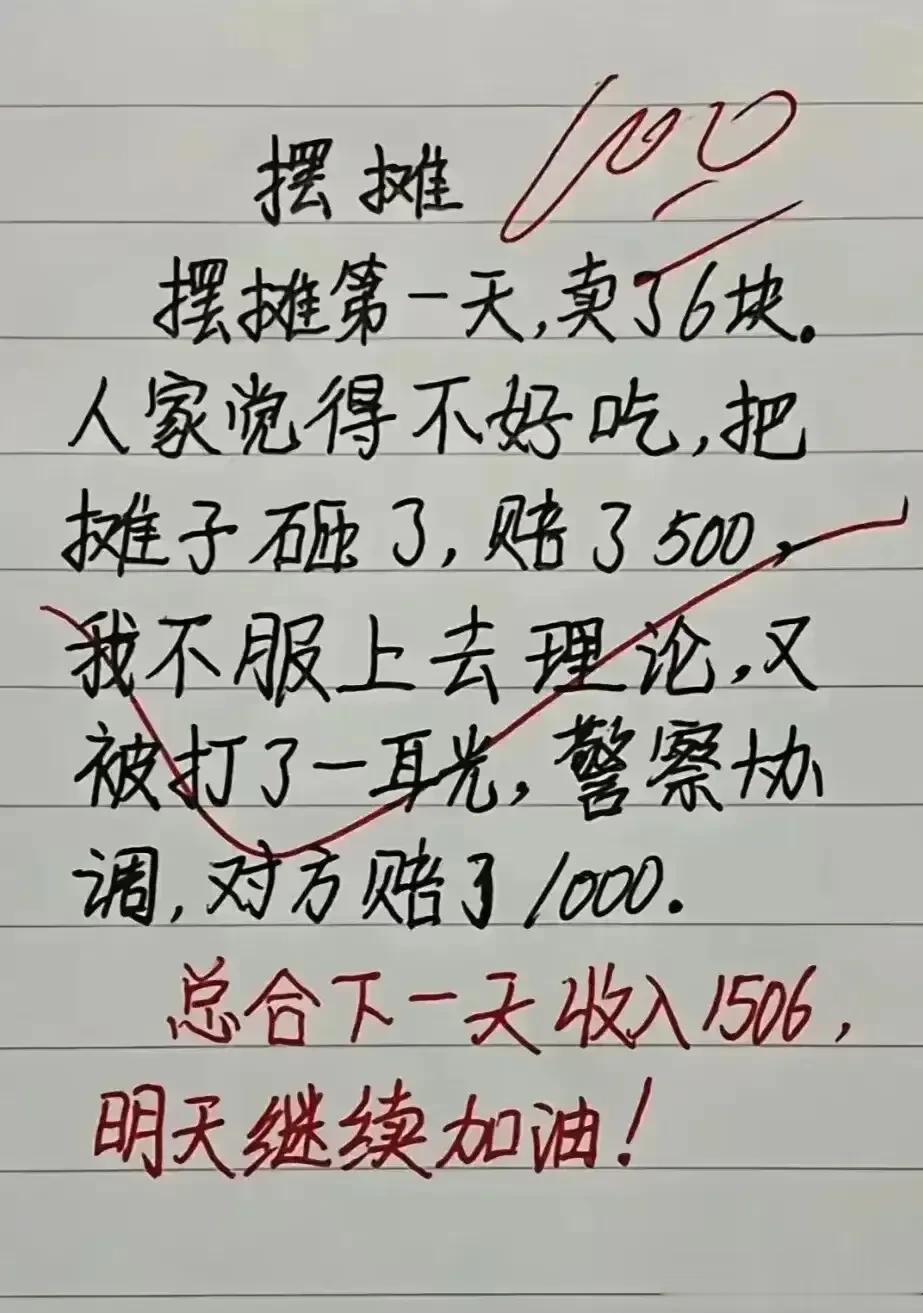 100
摆摊
摆摊第一天,卖了6块。
人家觉得不好吃,把
摊子砸了,赔了500,
我不服上去理论,又
被打了一耳光,警察协
调,对方赔了1000.
总合下一天收入1506,
明天继续加油!